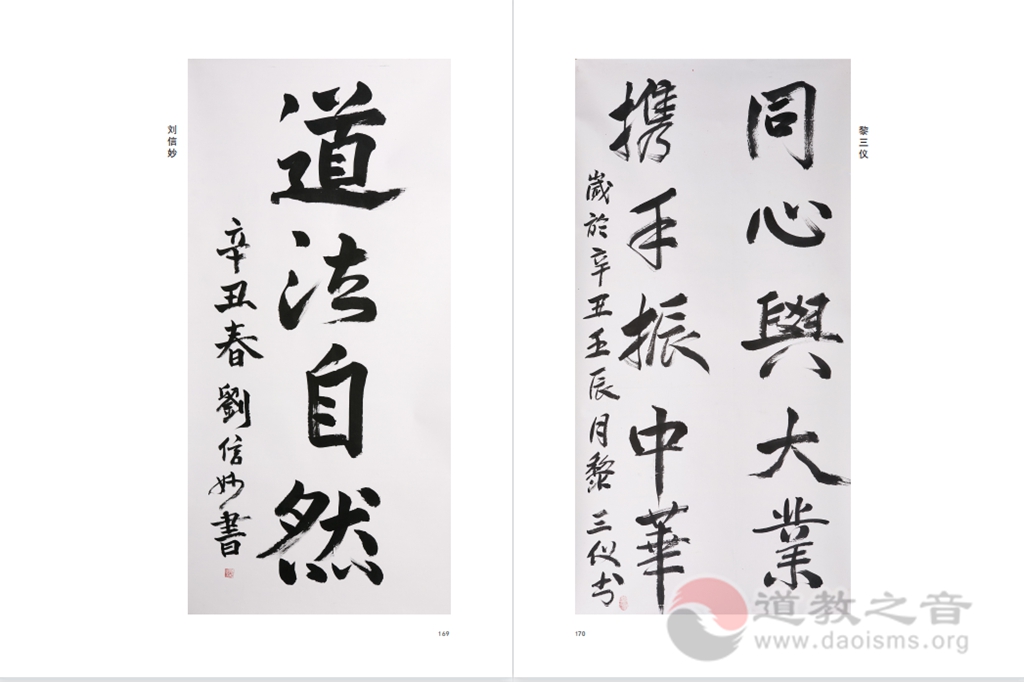 刘信妙
道法自然
辛丑春劉信妙書
169
黎三仪
同心與大業
携手振中華
歲於辛丑壬辰月黎三仪书
170
道教之音
www.daoisms.org